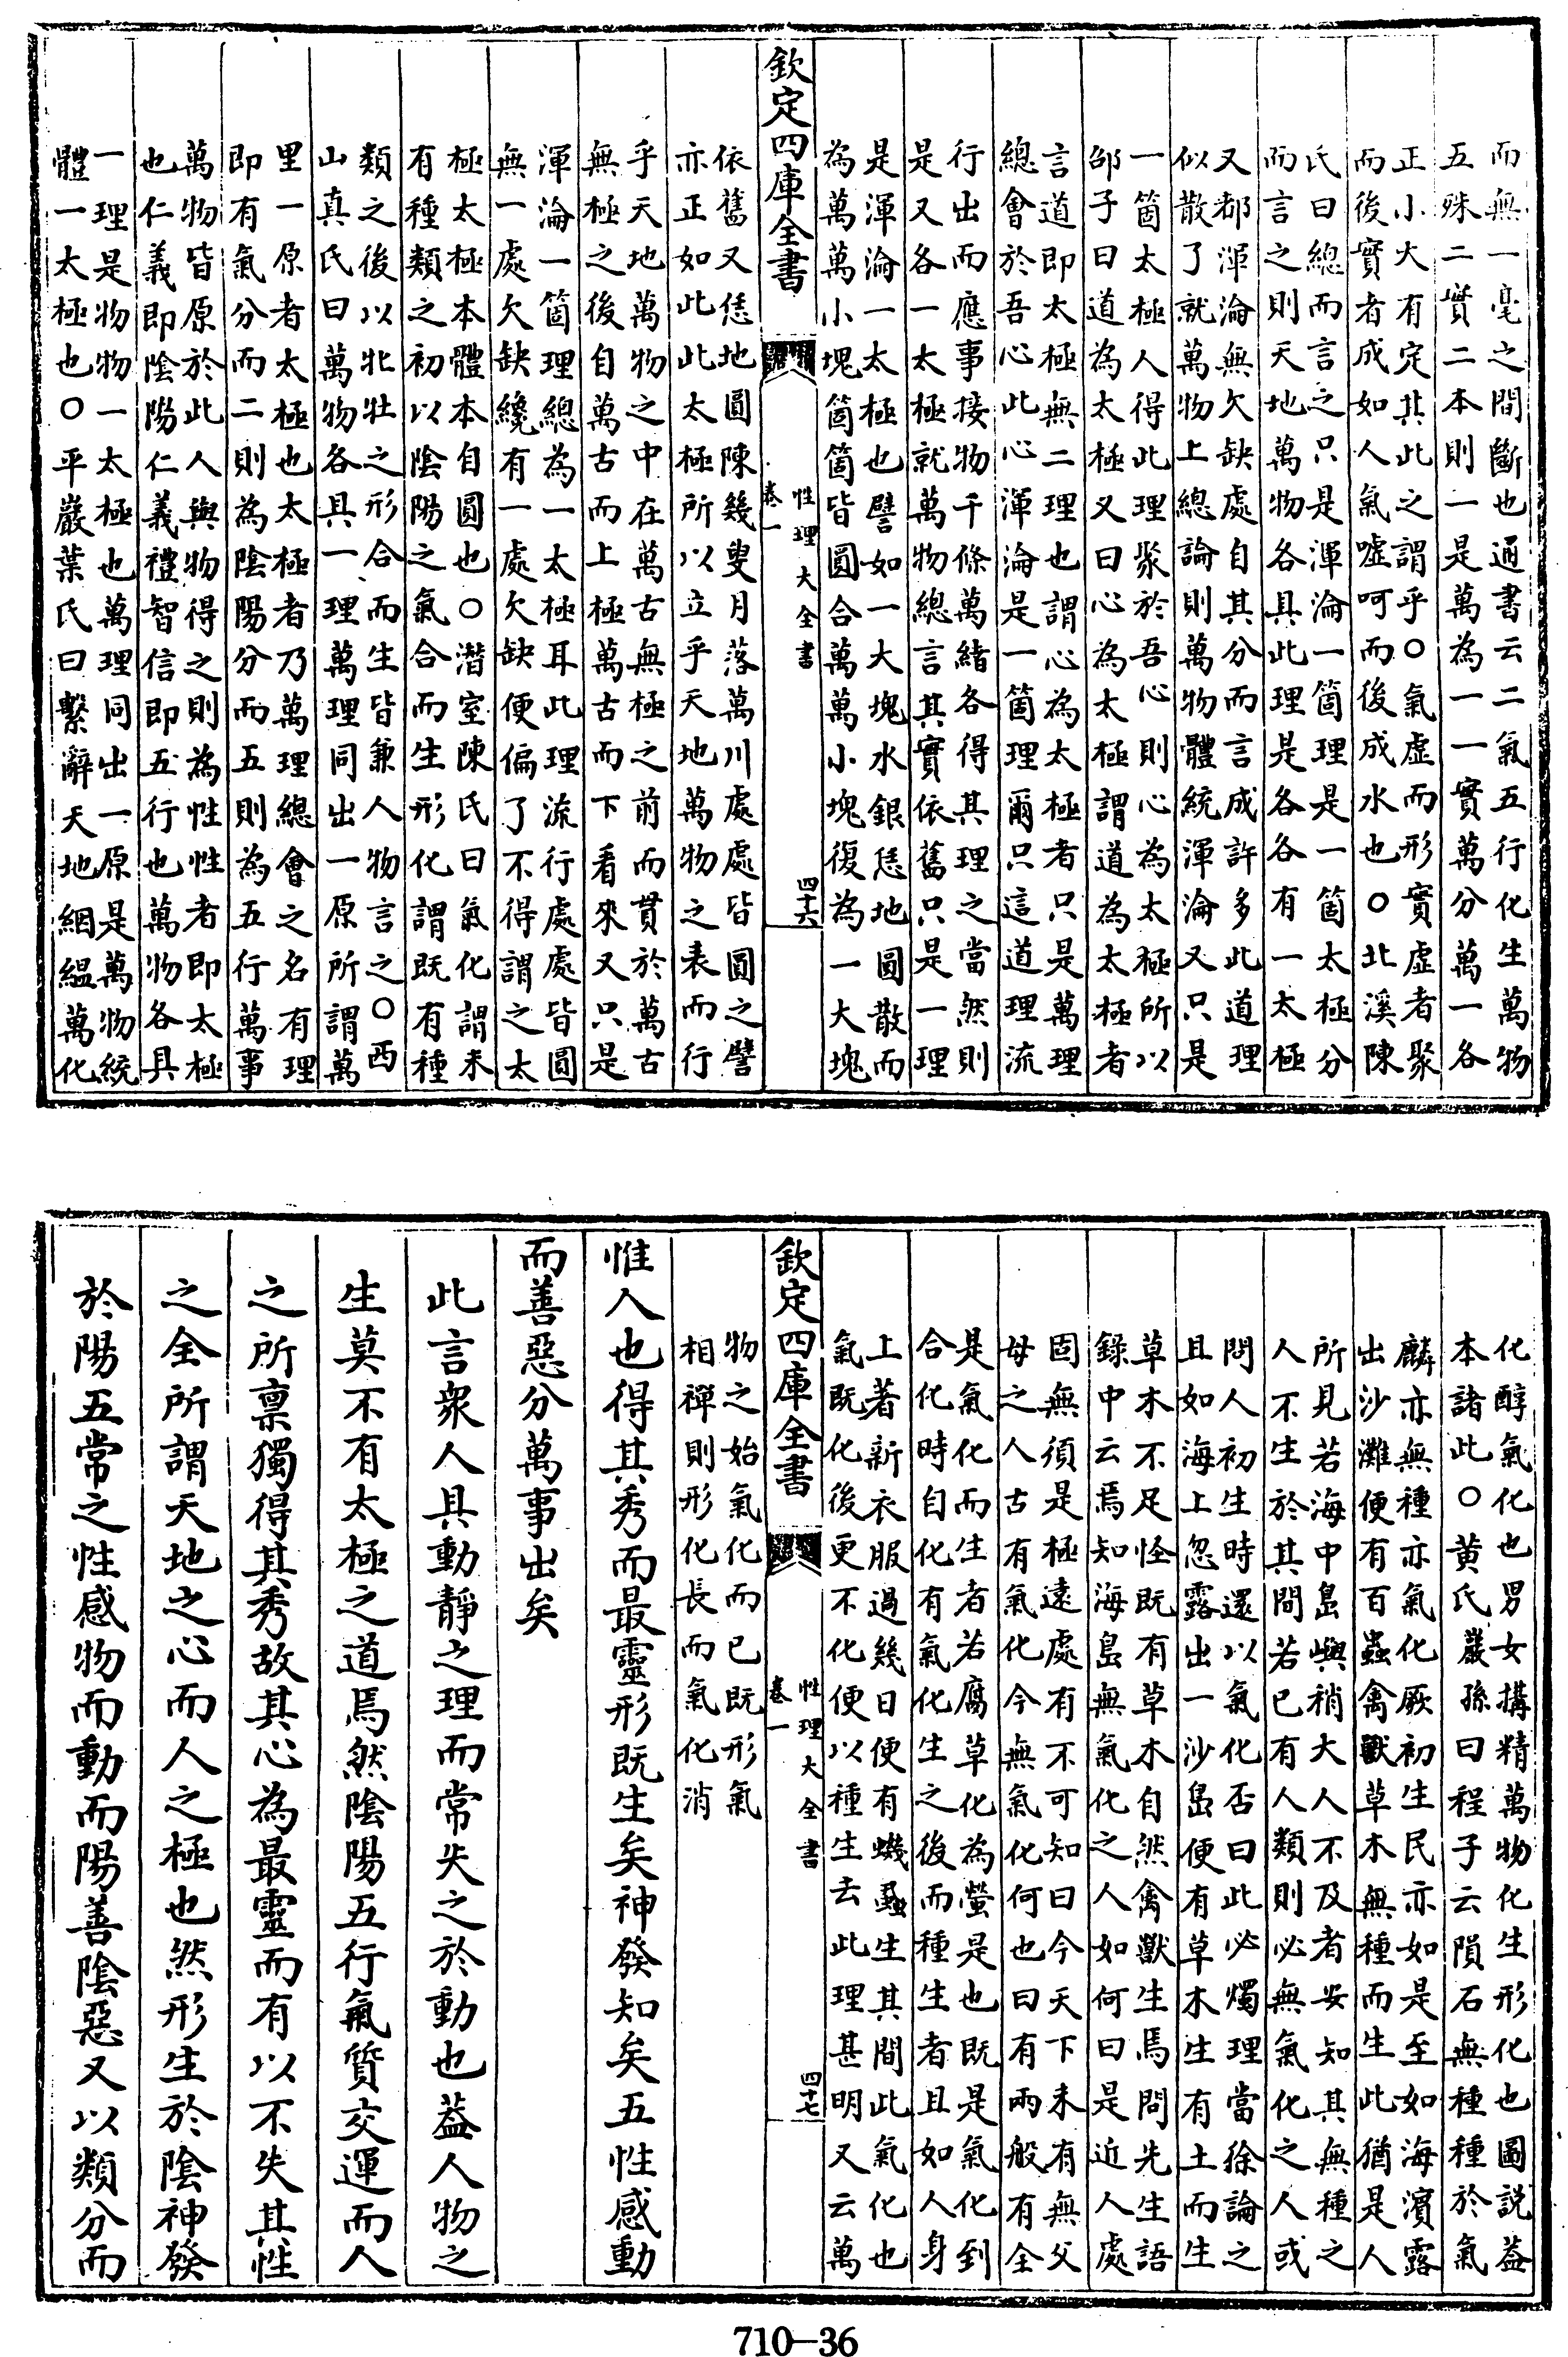 而無一毫之間斷也通書云二氣五行化生萬物
五殊二實二本則一是萬為一一實萬分萬一各
正小大有定其此之謂乎○氣虛而形實虛者聚
而後實者成如人氣噓呵而後成水也○北溪陳
氏曰總而言之只是渾淪一箇理是一箇太極分
而言之則天地萬物各具此理是各各有一太極
又都渾淪無欠缺處自其分而言成許多此道理
似散了就萬物上總論則萬物體統渾淪又只是
一箇太極人得此理聚於吾心則心為太極所以
邵子曰道為太極又曰心為太極謂道為太極者
言道即太極無二理也謂心為太極者只是萬理
總會於吾心此心渾淪是一箇理爾只這道理流
行出而應事接物千條萬緒各得其理之當然則
是又各一太極就萬物總言其實依舊只是一理
是渾淪一太極也譬如一大塊水銀恁地圓散而
為萬萬小塊箇箇皆圓合萬萬小塊復為一大塊
欽定四庫全書
性理大全書
卷一
四十六
依舊又恁地圓陳幾叟月落萬川處處皆圓之譬
亦正如此此太極所以立乎天地萬物之表而行
乎天地萬物之中在萬古無極之前而貫於萬古
無極之後自萬古而上極萬古而下看來又只是
渾淪一箇理總為一太極耳此理流行處處皆圓
無一處欠缺纔有一處欠缺便偏了不得謂之太
極太極本體本自圓也○潛室陳氏曰氣化謂未
有種類之初以陰陽之氣合而生形化謂既有種
類之後以牝牡之形合而生皆兼人物言之○西
山真氏曰萬物各具一理萬理同出一原所謂萬
里一原者太極也太極者乃萬理總會之名有理
即有氣分而二則為陰陽分而五則為五行萬事
萬物皆原於此人與物得之則為性性者即太極
也仁義即陰陽仁義禮智信即五行也萬物各具
一理是物物一太極也萬理同出一原是萬物統
體一太極也○平巖葉氏曰繫辭天地絪縕萬化
化醇氣化也男女搆精萬物化生形化也圖說蓋
本諸此○黃氏巖孫曰程子云隕石無種種於氣
麟亦無種亦氣化厥初生民亦如是至如海濱露
出沙灘便有百蟲禽獸草木無種而生此猶是人
所見若海中島嶼稍大人不及者安知其無種之
人不生於其間若已有人類則必無氣化之人或
問人初生時還以氣化否曰此必燭理當徐論之
且如海上忽露出一沙島便有草木生有土而生
草木不足怪既有草木自然禽獸生焉問先生語
錄中云焉知海島無氣化之人如何曰是近人處
固無須是極遠處有不可知曰今天下未有無父
母之人古有氣化今無氣化何也曰有兩般有全
是氣化而生者若腐草化為螢是也既是氣化到
合化時自化有氣化生之後而種生者且如人身
上著新衣服過幾日便有蟣蝨生其間此氣化也
氣既化後更不化便以種生去此理甚明又云萬
欽定四庫全書
性理大全書
卷一
四十七
物之始氣化而已既形氣
相禪則形化長而氣化消
惟人也得其秀而最靈形既生矣神發知矣五性感動
而善惡分萬事出矣
此言衆人具動靜之理而常失之於動也葢人物之
生莫不有太極之道焉然陰陽五行氣質交運而人
之所禀獨得其秀故其心為最靈而有以不失其性
之全所謂天地之心而人之極也然形生於陰神發
於陽五常之性感物而動而陽善陰惡又以類分而
710—36